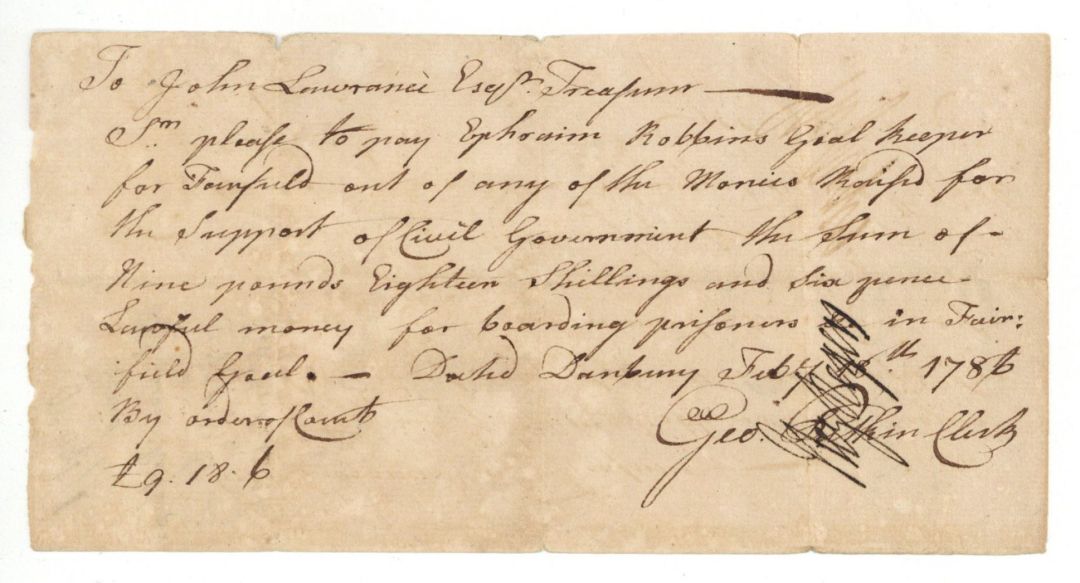 To John Lawrance Esqr. Treasurer
Sr. please to pay Ephraim Robbins Goal keeper
for Fairfield out of any of the Monies Raisd for
the Support of Civil Government the Sum of
Nine pounds Eighteen Shillings and Six pence
Lawful money for boarding prisoners in Fair:
field Goal. — Datd Danbury Feby th. 1786
By order of Court Geo. Pitkin Clerk
£9. 18. 6